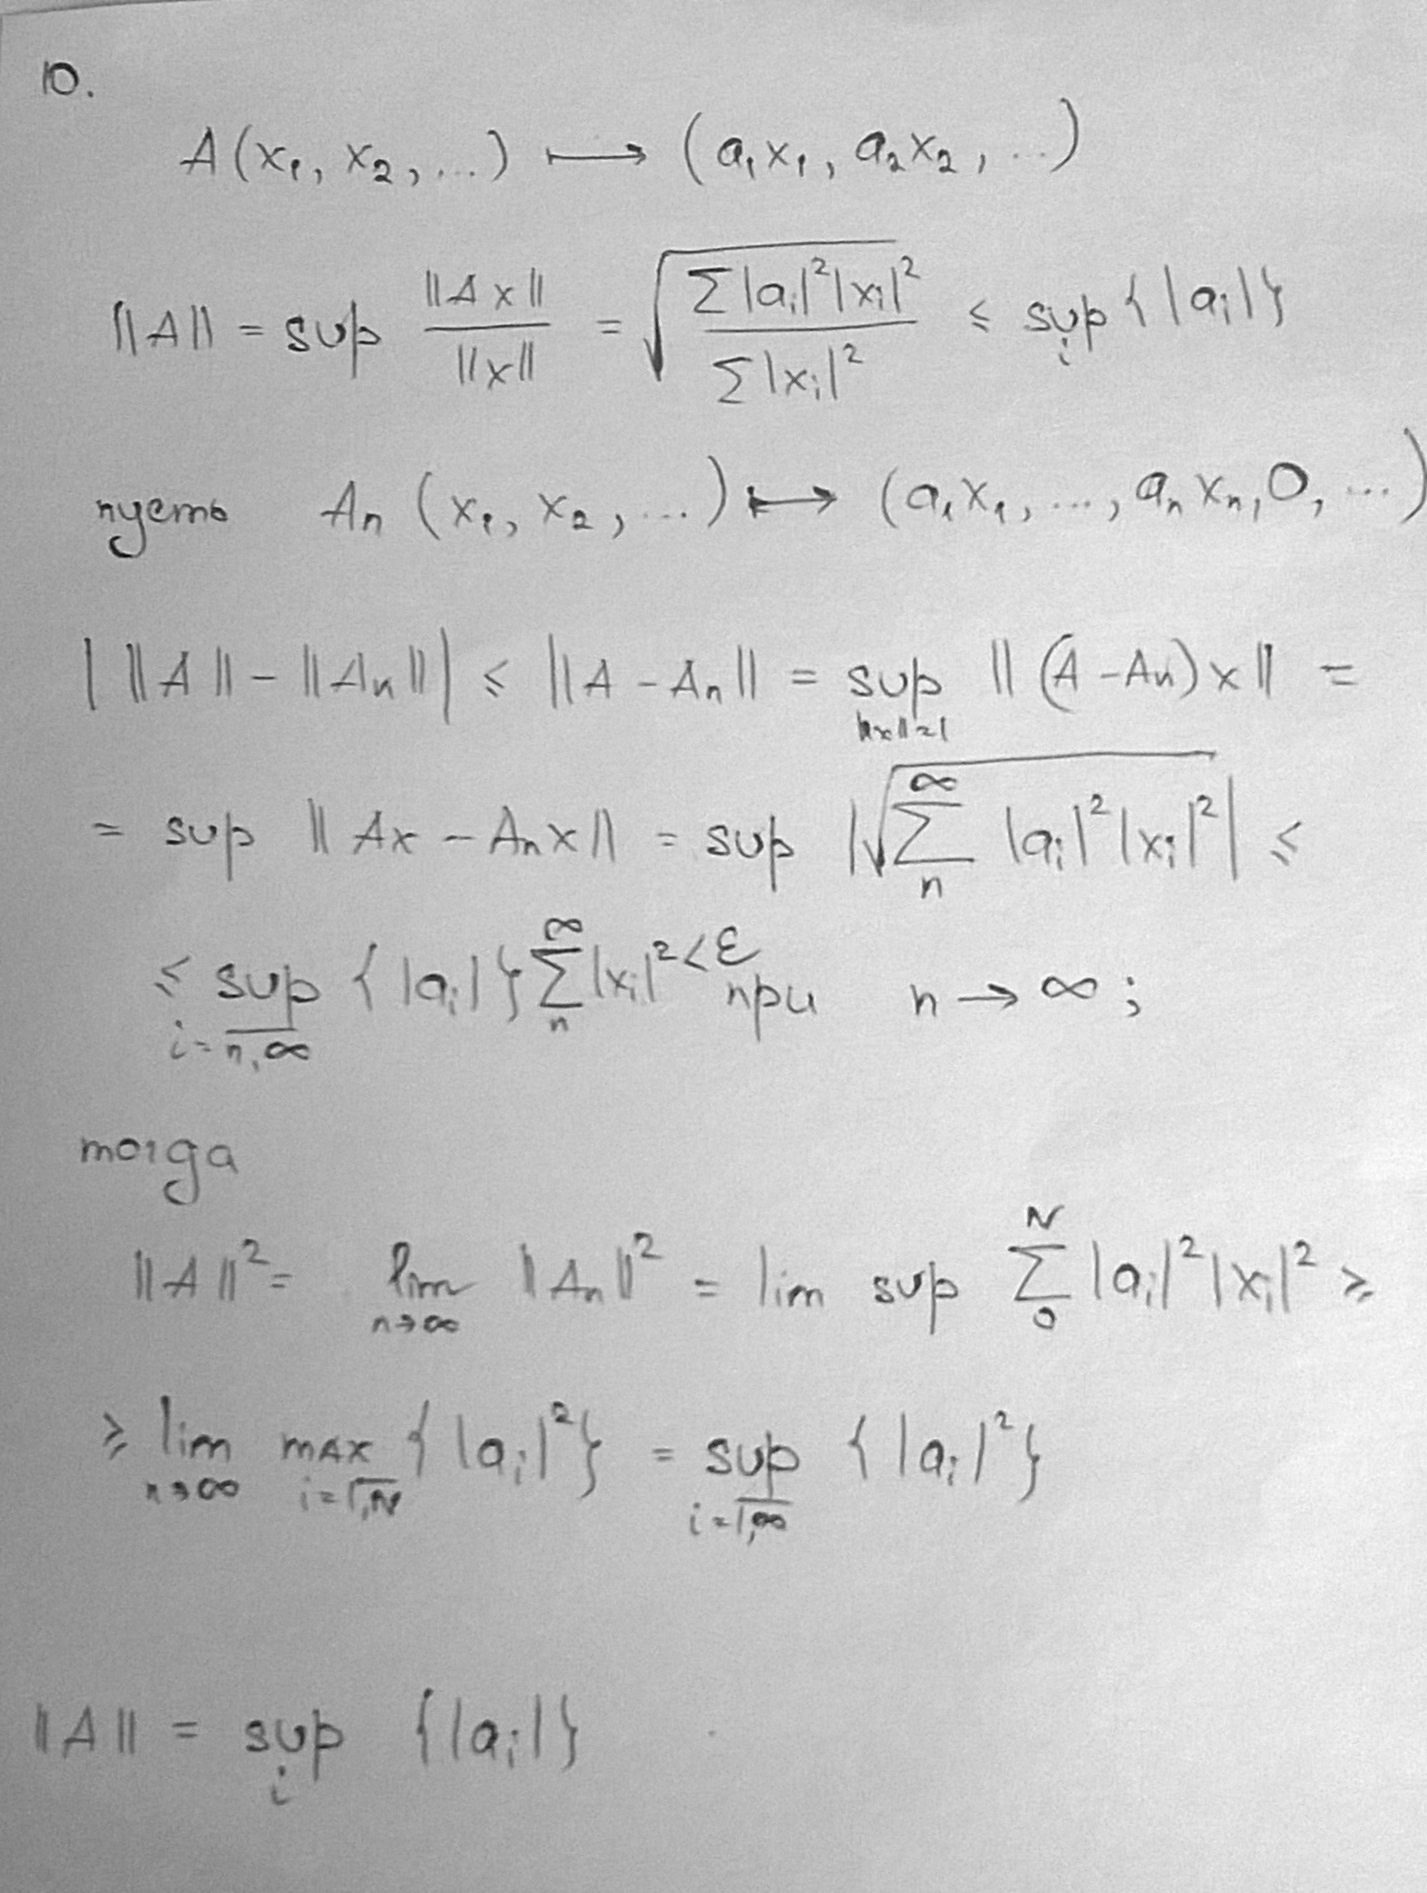 10.
A(x₁, x₂, ...) ⟼ (a₁x₁, a₂x₂, ...)
||A|| = sup ||Ax|| / ||x|| = √(Σ|aᵢ|²|xᵢ|² / Σ|xᵢ|²) ≤ sup_i {|aᵢ|}
пусть Aₙ (x₁, x₂, ...) ⟼ (a₁x₁, ..., aₙxₙ, 0, ...)
| ||A|| - ||Aₙ|| | ≤ ||A - Aₙ|| = sup_{||x||=1} ||(A - Aₙ)x|| =
= sup ||Ax - Aₙx|| = sup |√(Σ_n^∞ |aᵢ|²|xᵢ|²)| ≤
≤ sup_{i=\overline{n,∞}} {|aᵢ|} Σ_n^∞ |xᵢ|² < ε при n → ∞;
тогда
||A||² = lim_{n→∞} ||Aₙ||² = lim sup Σ_0^N |aᵢ|²|xᵢ|² ≥
≥ lim_{n→∞} max_{i=\overline{1,N}} {|aᵢ|²} = sup_{i=\overline{1,∞}} {|aᵢ|²}
||A|| = sup_i {|aᵢ|}